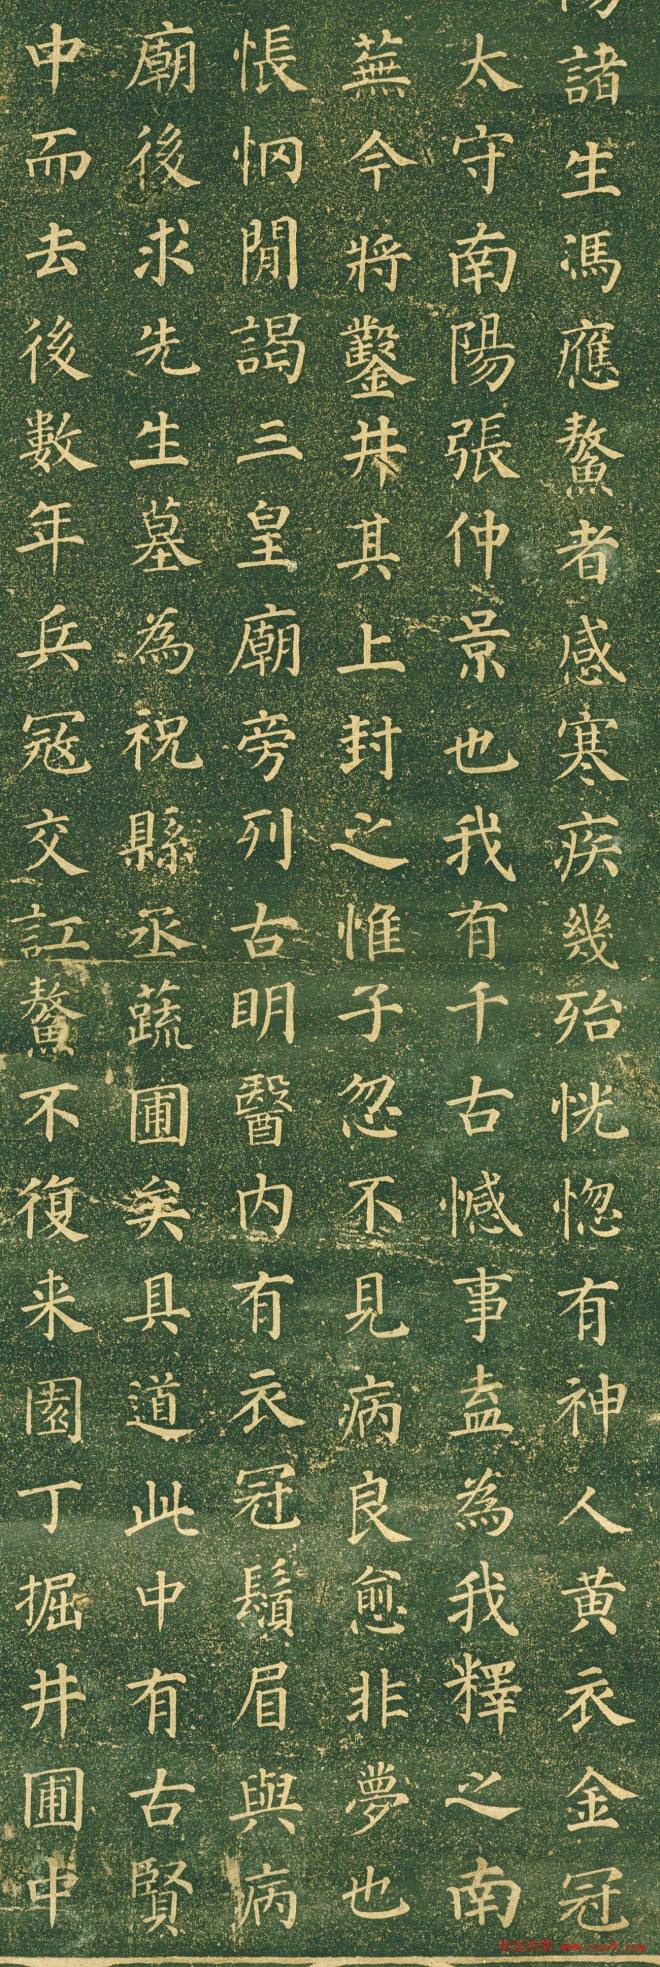 諸生馮應鰲者感寒疾幾殆恍惚有神人黄衣金冠
太守南陽張仲景也我有千古憾事盍為我釋之南
蕪今將鑿井其上封之惟子忽不見病良愈非夢也
悵惘間謁三皇廟旁列古明醫内有衣冠鬚眉與病
廟後求先生墓為祝縣丞蔬圃矣具道此中有古賢
中而去後數年兵冦交訌鰲不復来園丁掘井圃中